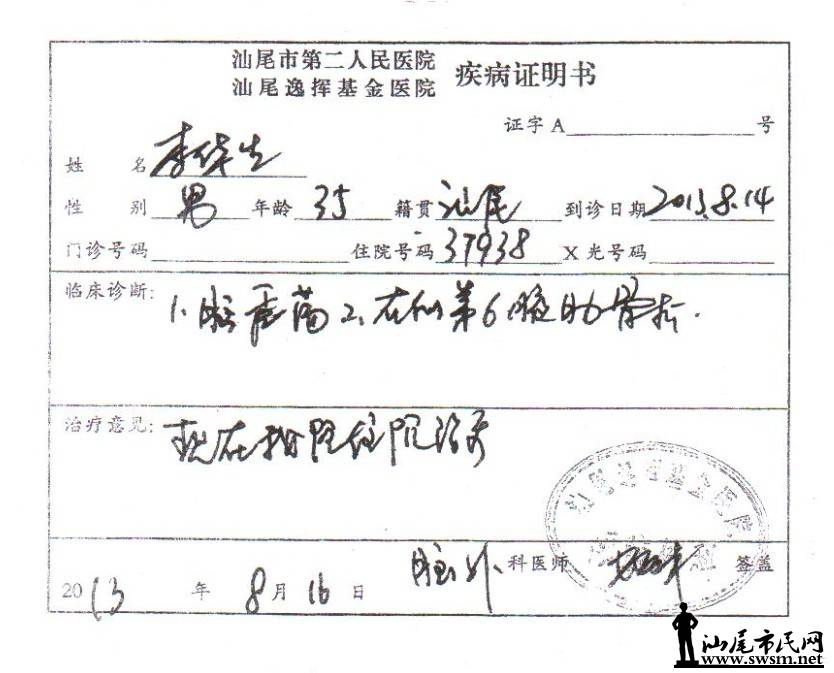 汕尾市第二人民医院
汕尾逸挥基金医院 疾病证明书
证字A 号
姓名 李华生
性别 男 年龄 35 籍贯 汕尾 到诊日期 2013.8.14
门诊号码 住院号码 37938 X光号码
临床诊断: 1.脑震荡 2.右侧第6腋肋骨折.
治疗意见: 现在我院住院治疗
脑外 科医师 签盖
2013年8月16日
汕尾市民网
www.swsm.net